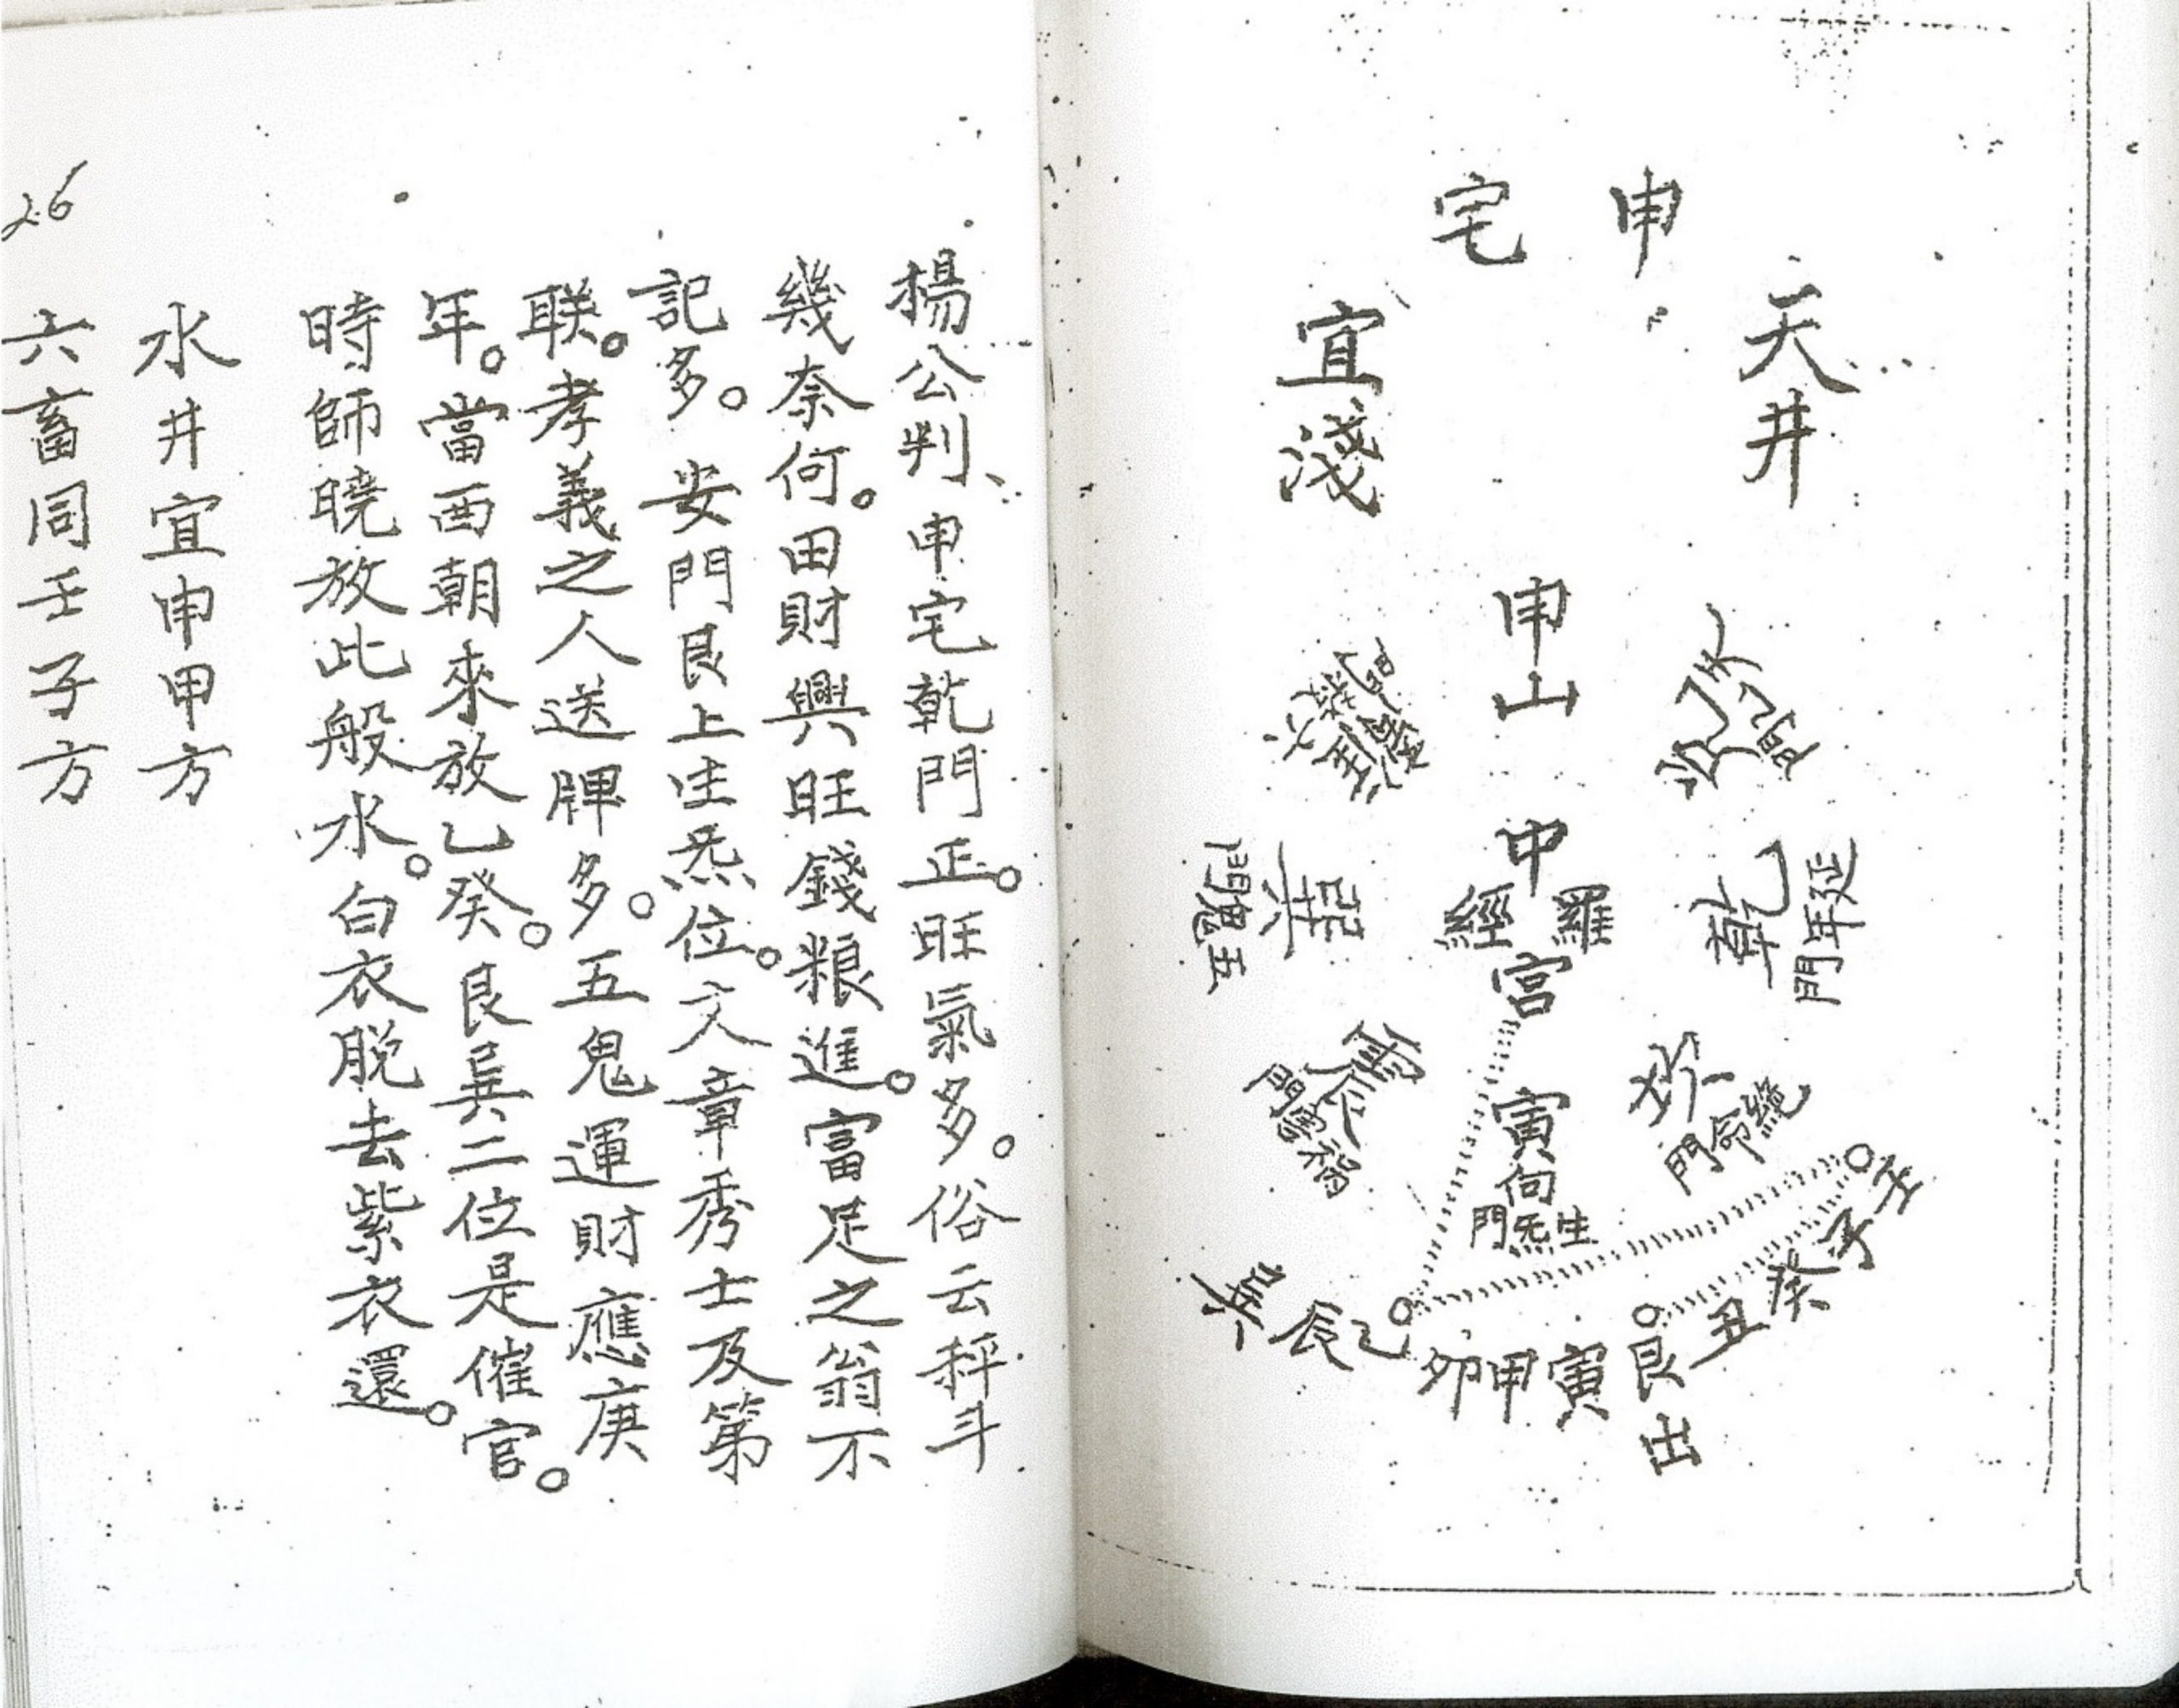 申宅
天井
宜淺
申山
中宮
羅經
乾
延年門
寅向
生炁門
絶命門
禍害門
五鬼門
壬
子
癸
丑
艮
出
寅
甲
卯
乙
辰
巽
楊公判、申宅乾門正。旺氣多。俗云秤斗
幾奈何。田財興旺錢粮進。富足之翁不
記多。安門艮上生炁位。文章秀士及第
联。孝義之人送牌多。五鬼運財應庚
年。當西朝來放乙癸。艮巽二位是催官。
時師曉放此般水。白衣脱去紫衣還。
水井宜申甲方
六畜同壬子方
26